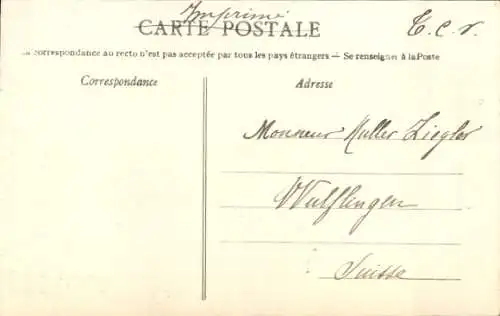 Imprimé
CARTE POSTALE
T. C. V.
La correspondance au recto n'est pas acceptée par tous les pays étrangers — Se renseigner à la Poste
Correspondance
Adresse
Monsieur Muller Ziegler
Wulflingen
Suisse